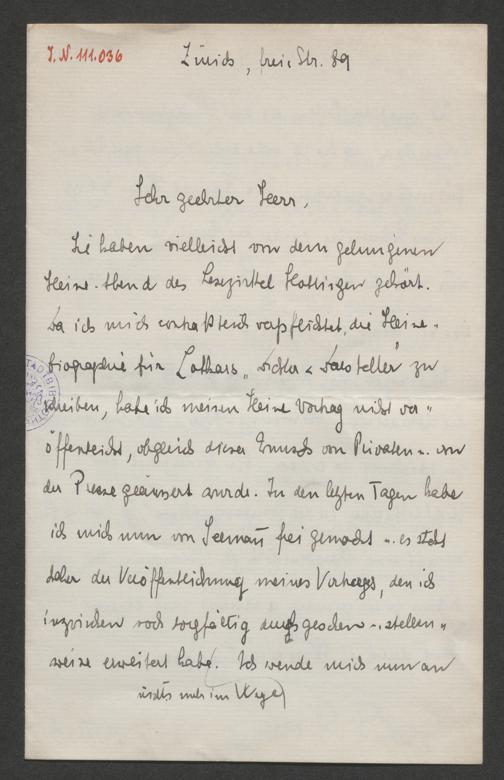 I.N. 111.036
Zürich, freie Str. 89
Sehr geehrter Herr,
Sie haben vielleicht von dem gelungenen
Heine-Abend des Lesezirkel Hottingen gehört.
Da ich mich contraktlich verpflichtet, die Heine-
biographie für Lothars "Dichter u. Darsteller" zu
schreiben, habe ich meinen Heine Vortrag nicht ver-
öffentlicht, obgleich dieser Wunsch von Privaten u. von
der Presse geäussert wurde. In den letzten Tagen habe
ich mich nun von Seemann frei gemacht u. es steht
daher der Veröffentlichung meines Vortrages, den ich
inzwischen noch sorgfältig durchgesehen u. stellen-
weise erweitert habe. Ich wende mich nun an
nichts mehr im Wege